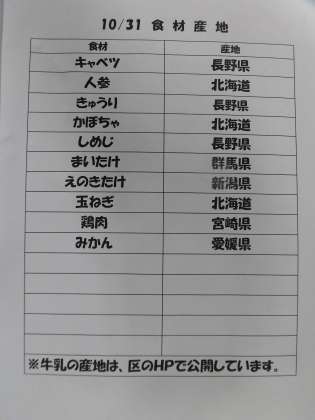 10/31 食材産地
食材 産地
キャベツ 長野県
人参 北海道
きゅうり 長野県
かぼちゃ 北海道
しめじ 長野県
まいたけ 群馬県
えのきたけ 新潟県
玉ねぎ 北海道
鶏肉 宮崎県
みかん 愛媛県
※牛乳の産地は、区のHPで公開しています。